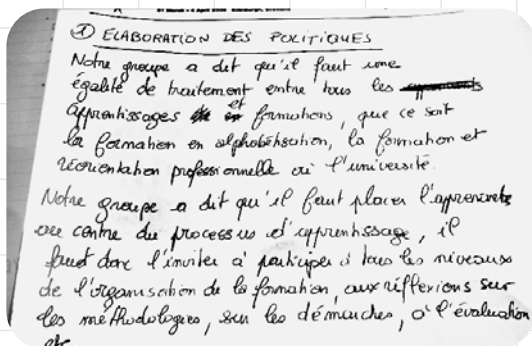 ① ELABORATION DES POLITIQUES
Notre groupe a dit qu'il faut une
égalité de traitement entre tous les
apprentissages et formations, que ce soit
la formation en alphabétisation, la formation et
réorientation professionnelle ou l'université.
Notre groupe a dit qu'il faut placer l'apprenant
au centre du processus d'apprentissage, il
faut donc l'inviter à participer à tous les niveaux
de l'organisation de la formation, aux réflexions sur
les méthodologies, sur les démarches, à l'évaluation